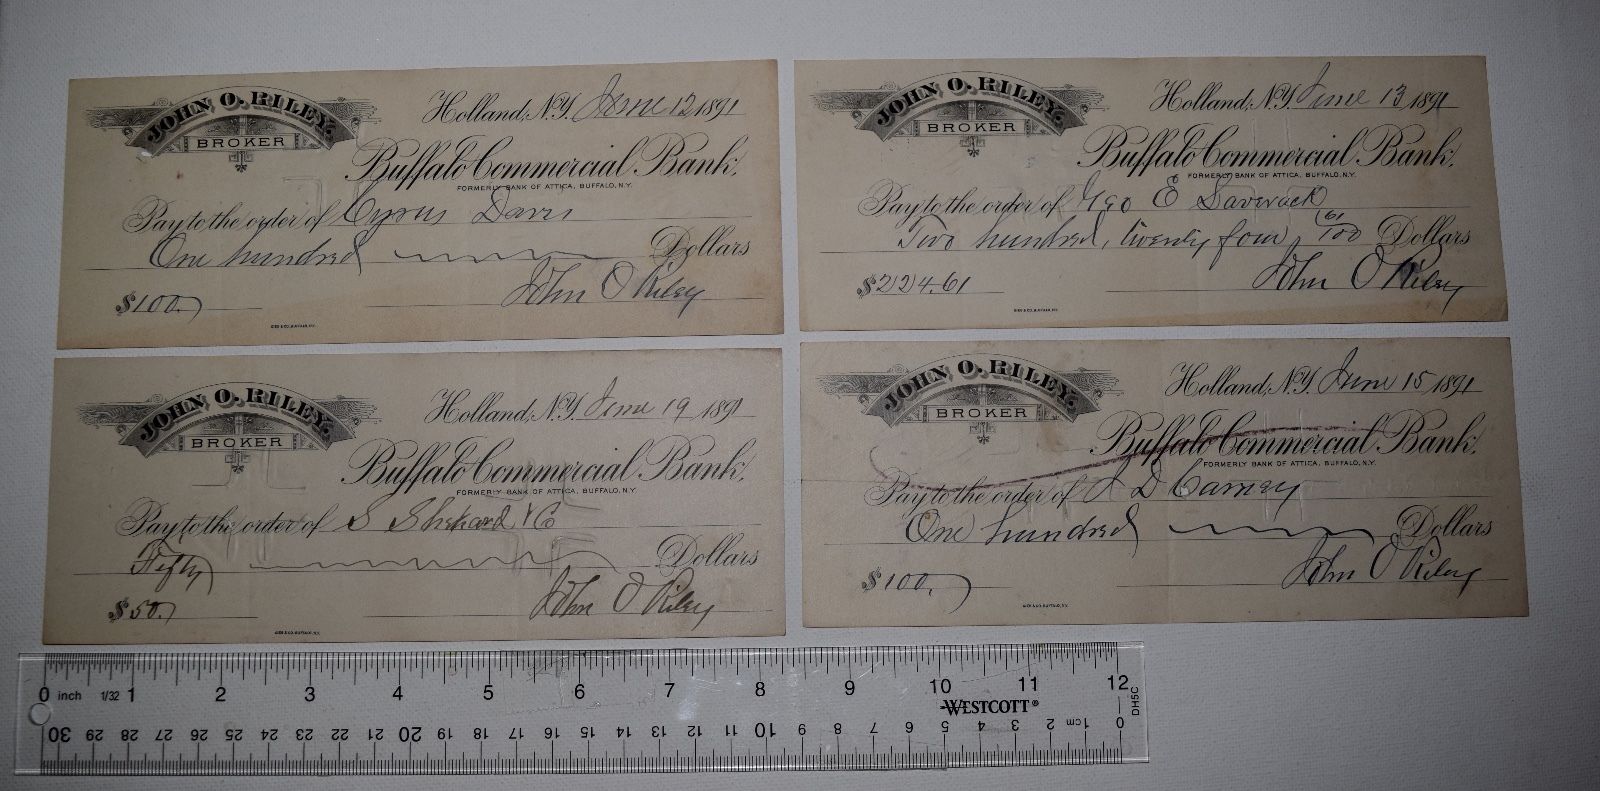 JOHN O. RILEY.
BROKER
Holland, N.Y. June 12 1891
Buffalo Commercial Bank,
FORMERLY BANK OF ATTICA, BUFFALO, N.Y.
Pay to the order of Cyrus Davis
One hundred Dollars
$100. John O Riley
JOHN O. RILEY.
BROKER
Holland, N.Y. June 13 1891
Buffalo Commercial Bank,
FORMERLY BANK OF ATTICA, BUFFALO, N.Y.
Pay to the order of Geo E Laverack
Two hundred, twenty four 61/100 Dollars
$224.61 John O Riley
JOHN O. RILEY.
BROKER
Holland, N.Y. June 19 1891
Buffalo Commercial Bank,
FORMERLY BANK OF ATTICA, BUFFALO, N.Y.
Pay to the order of S Shepard & Co
Fifty Dollars
$50. John O Riley
JOHN O. RILEY.
BROKER
Holland, N.Y. June 15 1891
Buffalo Commercial Bank,
FORMERLY BANK OF ATTICA, BUFFALO, N.Y.
Pay to the order of J D Carney
One hundred Dollars
$100. John O Riley
GIES & CO. BUFFALO, N.Y.
0 inch 1/32 1 2 3 4 5 6 7 8 9 10 11 12
WESTCOTT®
DH5C
30 29 28 27 26 25 24 23 22 21 20 19 18 17 16 15 14 13 12 11 10 9 8 7 6 5 4 3 2 1cm 0